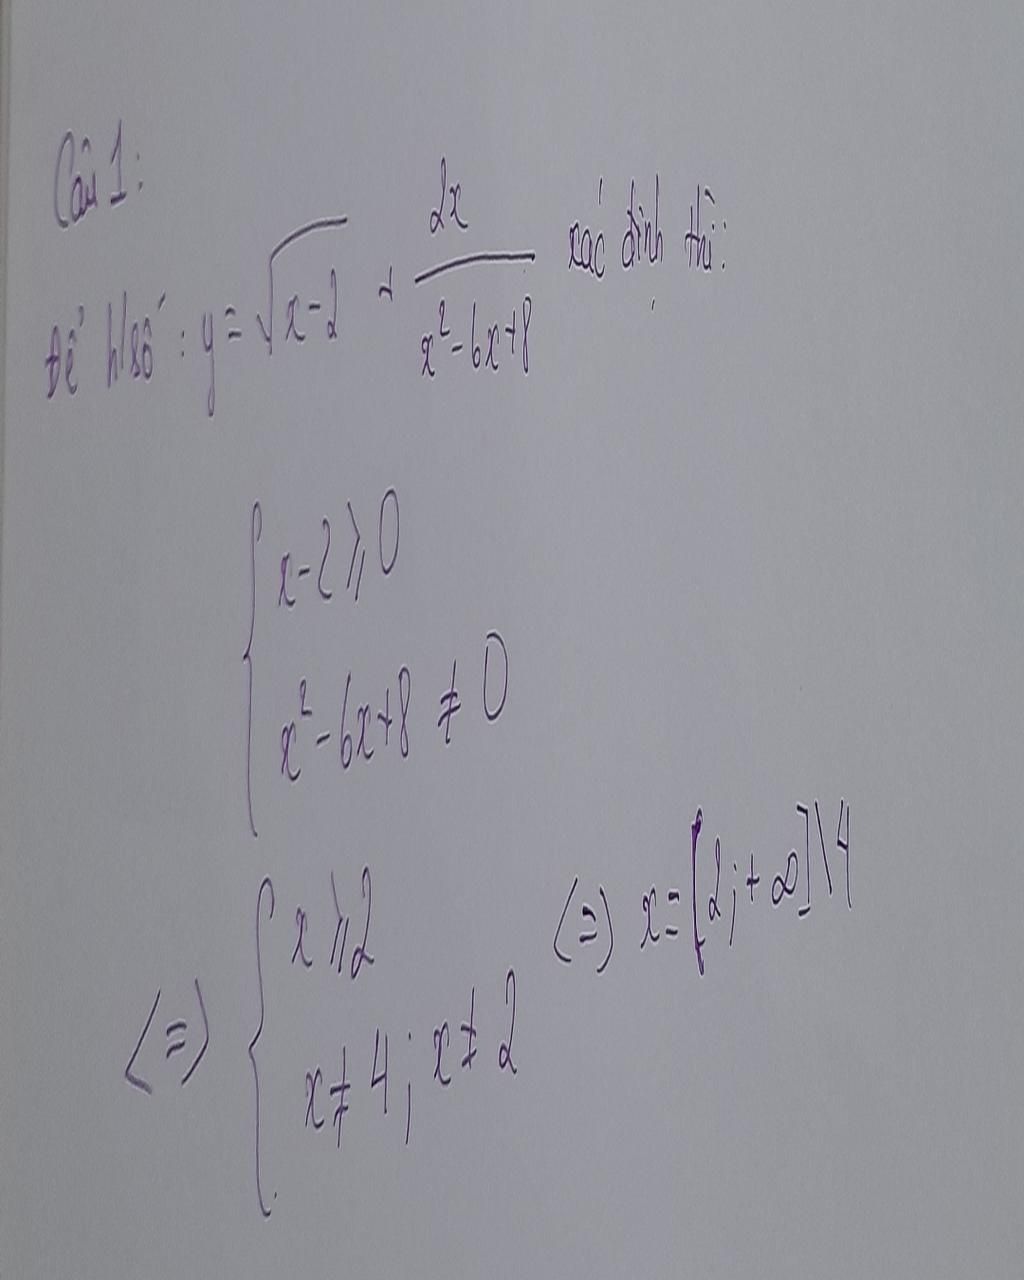 Câu 1:
Để h/số : y = √(x-2) + 2x/(x²-6x+8) xác định thì:
{ x-2 ⩾ 0
x²-6x+8 ≠ 0
<=> { x ⩾ 2
x ≠ 4 ; x ≠ 2 <=> x = [2;+∞]\4